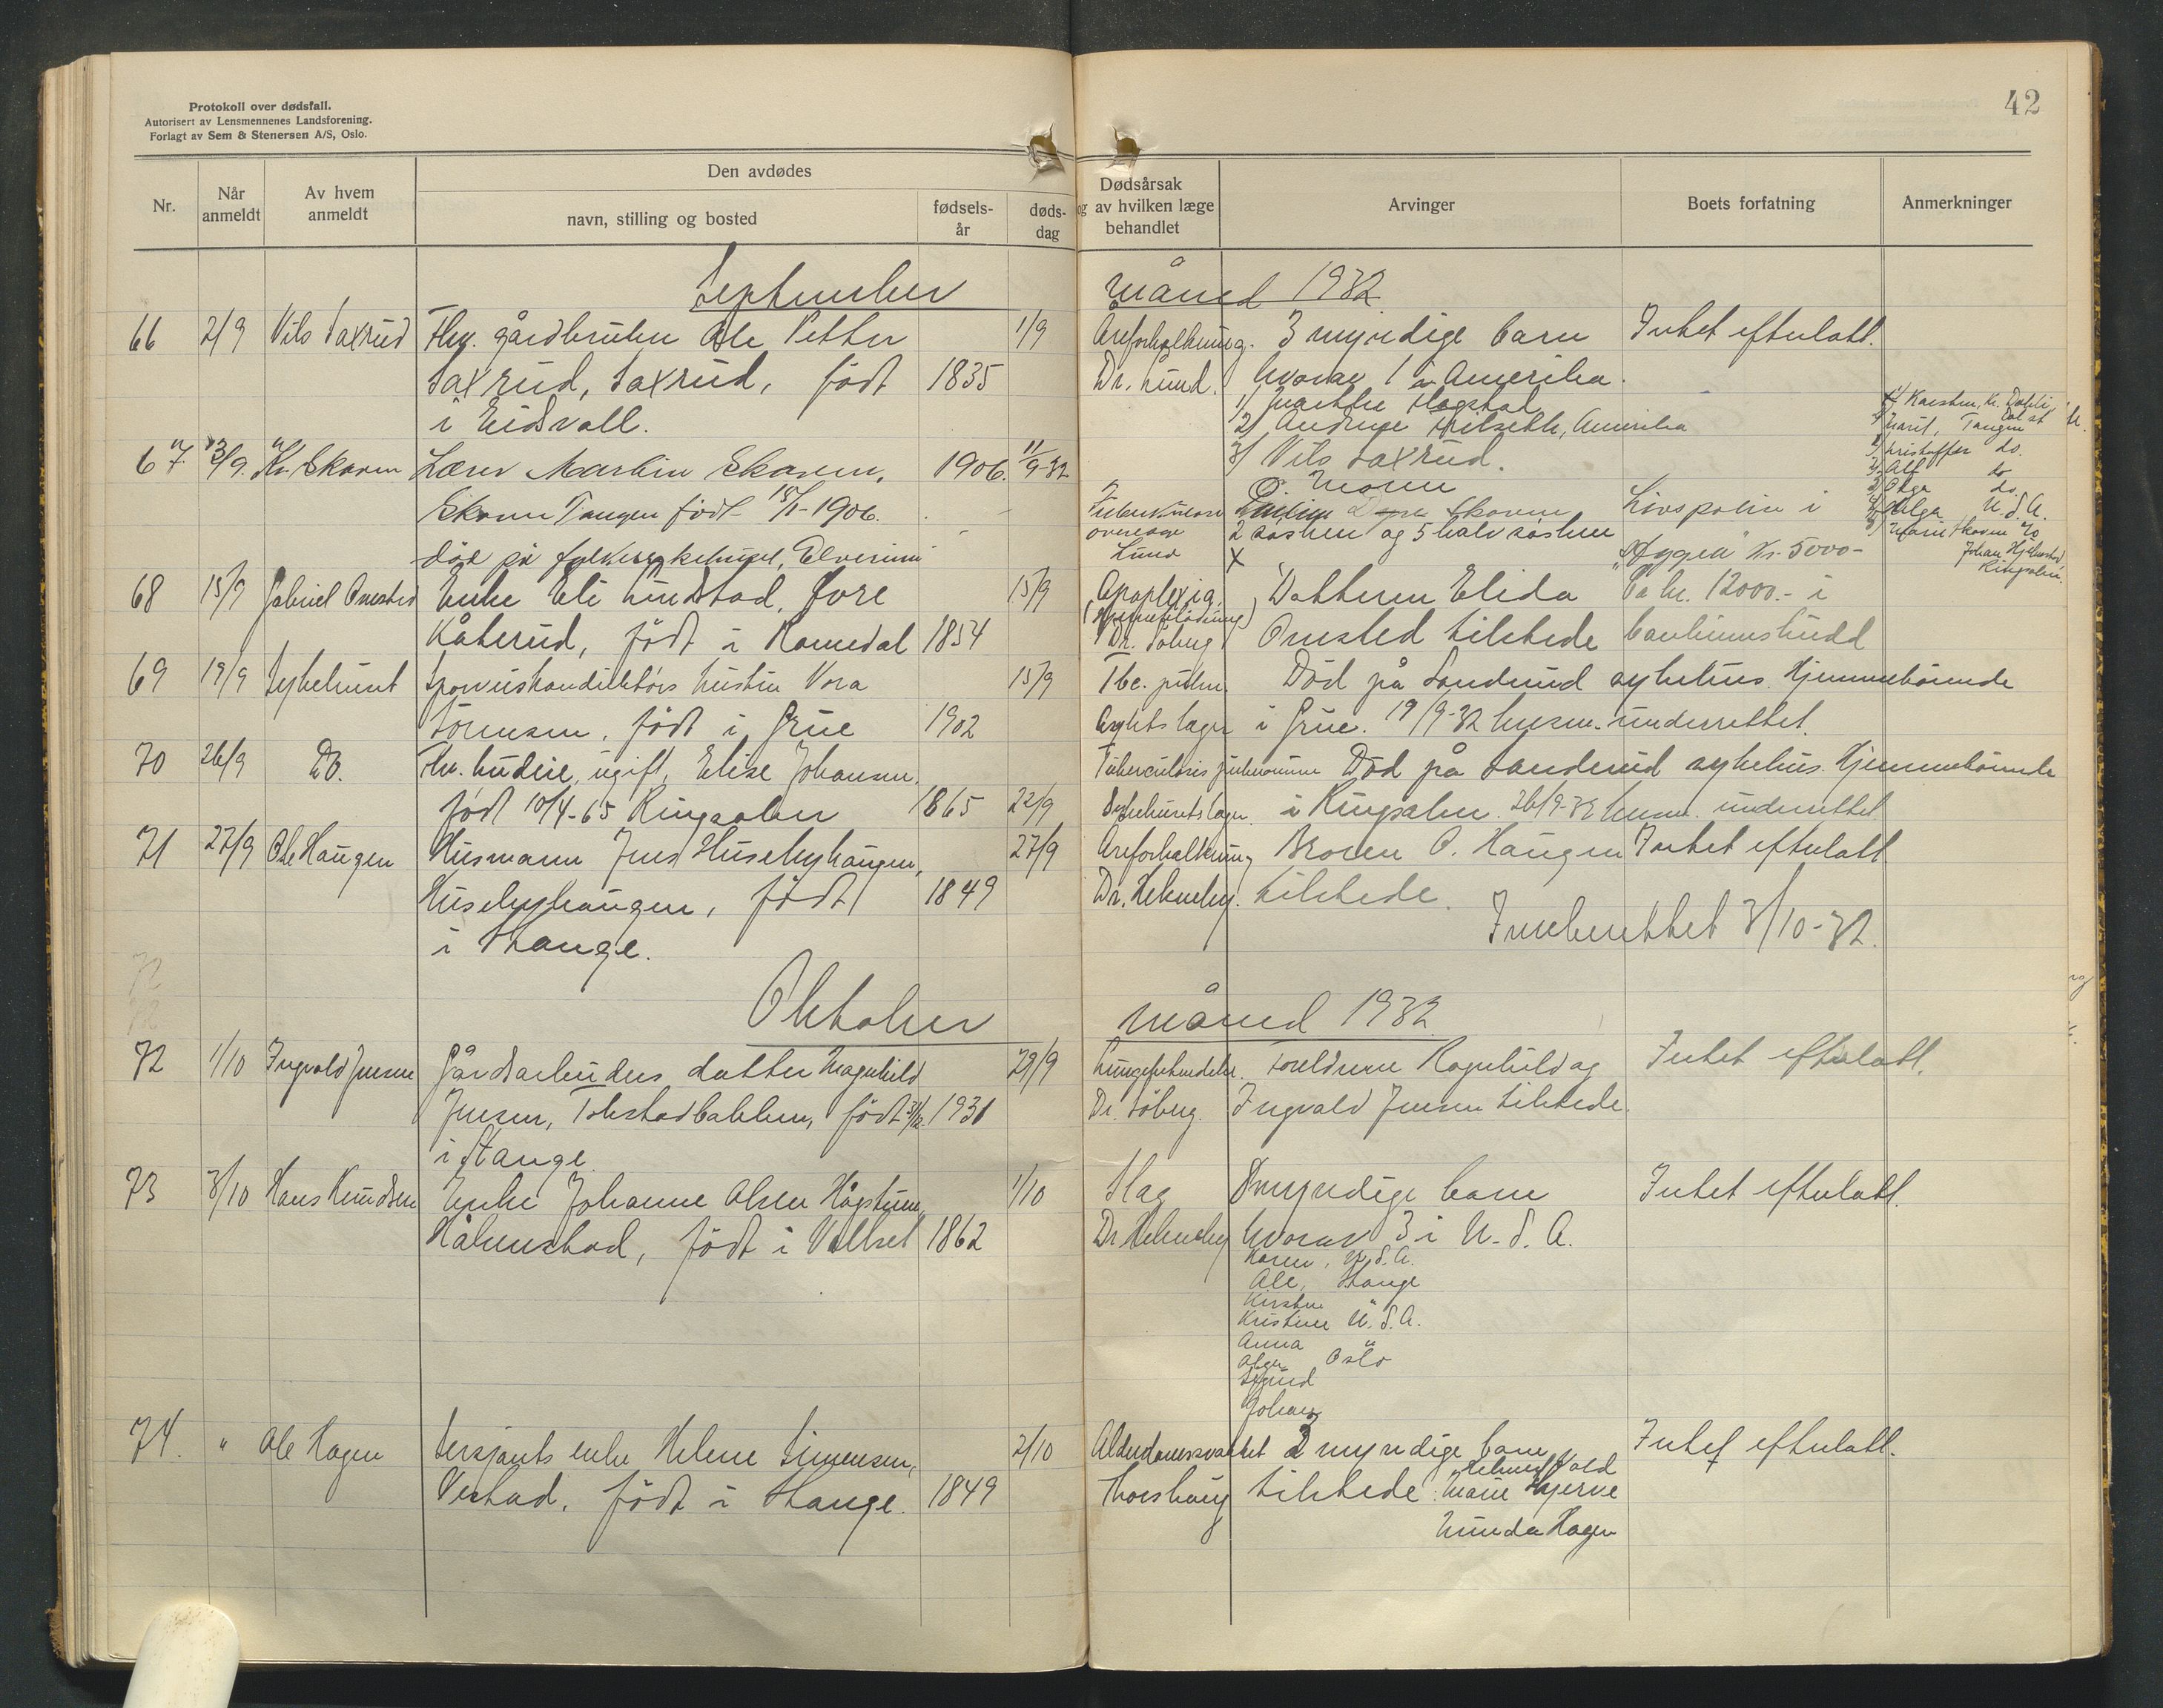 Protokoll over dødsfall.
Autorisert av Lensmennenes Landsforening.
Forlagt av Sem & Stenersen A/S, Oslo.
42
Nr.
Når anmeldt
Av hvem anmeldt
Den avdødes
navn, stilling og bosted
fødsels-år
døds-dag
Dødsårsak
og av hvilken læge
behandlet
Arvinger
Boets forfatning
Anmerkninger
September måned 1932
66 2/9 Nils Saxrud Fhv. gårdbruker Ole Petter 1/9 Åreforkalkning. 3 myndige barn Intet efterlatt.
Saxrud, Saxrud, født 1835 Dr. Lund. hvorav 1 i Amerika.
i Eidsvoll.
1) Marthe Hagstad
2) Andrine Hilseth, Amerika
3) Nils Saxrud.
67 13/9. Kr. Skaven Lærer Martin Skaven, 1906. 11/9-32 Moren
Skaven Tangen født 18/1-1906. Tuberkulose Skaven Livspolise i
død på fylkessykehuset, Elverum Lund 2 søsken og 5 halvsøsken "Hygea" Kr. 5000-
Marit, Tangen
Kristoffer do.
Alf do
Olga do.
Helga U.S.A.
68 15/9 Gabriel Omsted Enke Eli Lundstad, Øvre 15/9 Apoplexia, Datteren Elida Ca kr. 12000.- i
Kåterud, født i Romedal 1854 (Hjerneblødning) Dr. Söberg Omsted tilstede
69 19/9 Sykehuset Sporveiskonduktørs hustru Nora 15/9 Tbc. pulm. Död på Sanderud sykehus. Hjemmehørende
Sørensen, født i Grue 1902 Asylets læge i Grue. 19/9-32 lensm. underrettet.
70 26/9 Do. Fhv. budeie, ugift, Elise Johansen, Tuberculosis pulmonum Död på Sanderud sykehus. Hjemmehørende
født 10/4-65 Ringsaker 1865 22/9 Sykehusets læge. i Ringsaker. 26/9-32 lensm. underrettet
71 27/9 Ole Haugen Husmann Jens Husebyhaugen, 27/9 Åreforkalkning Broren O. Haugen Intet efterlatt
Husebyhaugen, født 1849 Dr. Helmeby. tilstede.
i Stange.
Innberettet 3/10-32.
Oktober måned 1932
72 1/10 Ingvald Jensen Gårdsarbeiders datter Magnhild 29/9 Lungebetendelse. Foreldrene Ragnhild og Intet efterlatt.
Jensen, Tokstadbakken, født 1931 Dr. Söberg. Ingvald Jensen tilstede.
i Stange.
73 3/10 Hans Knudsen Enke Johanne Olsen Høgstuen, 1/10 Slag 8 myndige barn Intet efterlatt.
født i Vallset 1862 Dr Helmeby hvorav 3 i U.S.A.
Karen, U.S.A.
Ole, Stange
Kirsten "
Kristine U.S.A.
Anna "
Olga Oslo
Sigrid
Johan
74. " Ole Hagen Sersjants enke Helene Simensen, 2/10 Alderdomssvakket 2 myndige barn Intet efterlatt.
Vestad, født i Stange. 1849 Thorshaug tilstede: Marie Hjerve
Hagen